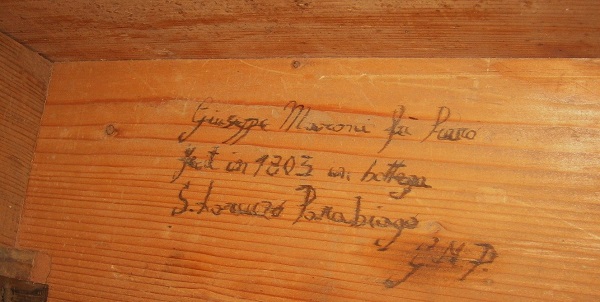 Giuseppe Maroni fu Piero
fect in 1803 in bottega
S. Lorenzo Parabiago
G.M.P.